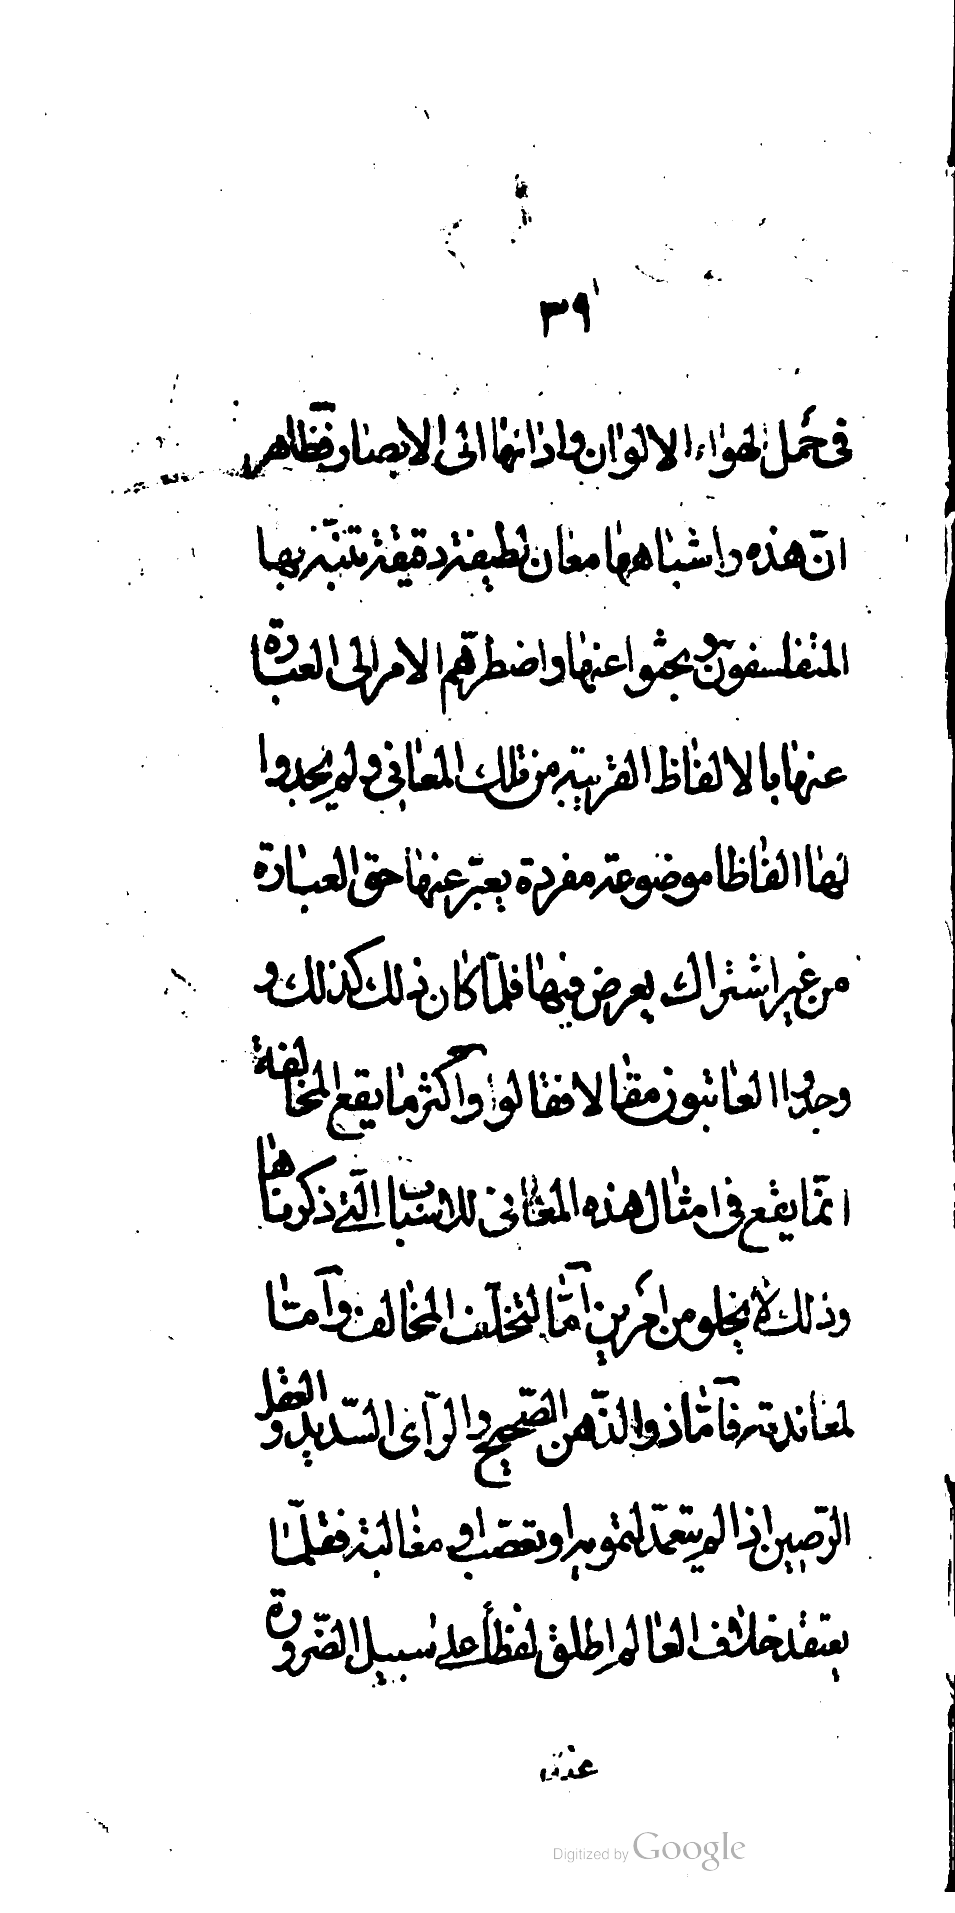 ٣٩
فى حمل الهواء الالوان واذانها الى الابصار فظاهر
انّ هذه واشباهها معان لطيفة دقيقة تنبّه بها
المتفلسفون وبحثوا عنها واضطرهم الامر الى العبارة
عنها بالالفاظ القريبة من تلك المعانى ولم يجدوا
لها الفاظا موضوعة مفردة يعبّر عنها حق العبارة
من غير اشتراك يعرض فيها فلمّا كان ذلك كذلك و
وجدوا العائبون مقالا فقالوا واكثر ما يقع المخالفة
انّما يقع فى امثال هذه المعانى للاسباب الّتى ذكرناها
وذلك لا يخلو من امرين امّا لتخلّف المخالف وامّا
لمعاندته فامّا ذو الذّهن الصّحيح والرأى السّديد والعقل
الرّصين اذا لم يتعمّد لتمويه او تعصّب او مغالبة فقلّما
يعتقد خلاف العالم اطلق لفظا على سبيل الضّرورة
عند
Digitized by Google